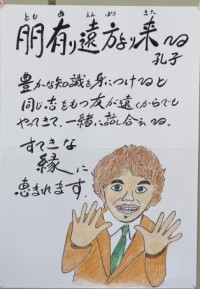 とも あ えんぽう きた
朋有り遠方より来る
孔子
豊かな知識を身につけると
同じ志をもつ友が遠くからでも
やってきて、一緒に話し合える。
すてきな
縁に
恵まれます。